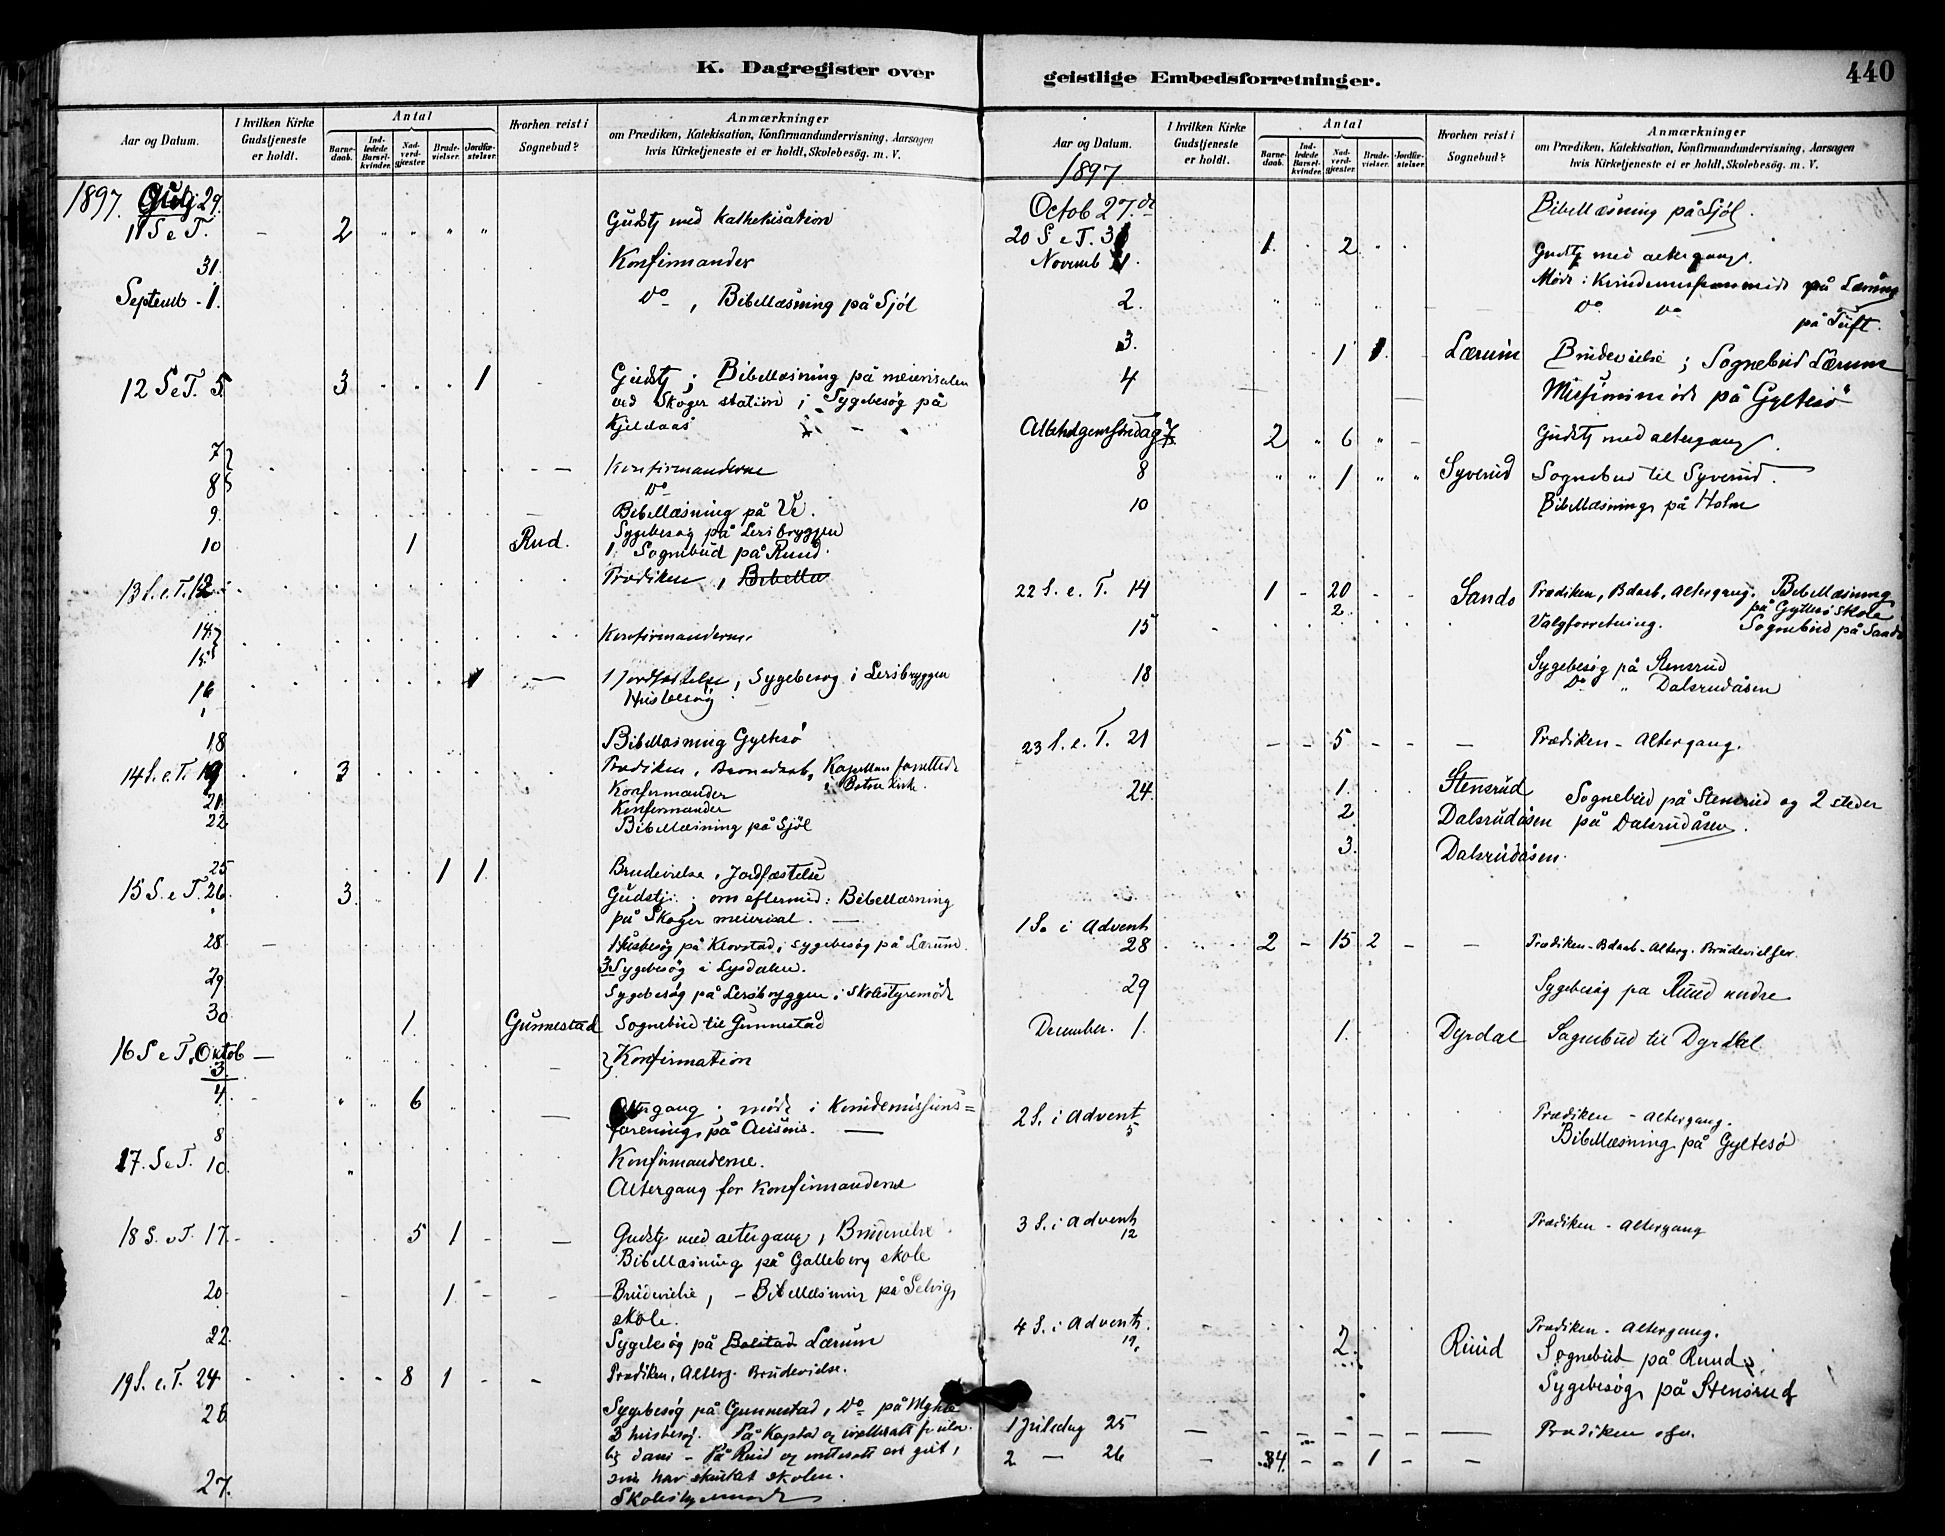 K. Dagregister over
Aar og Datum.
I hvilken Kirke Gudstjeneste er holdt.
Antal
Barnedaab.
Indledede Barselkvinder.
Nadverdgjester
Brudevielser.
Jordfæstelser.
Hvorhen reist i Sognebud?
Anmærkninger
om Prædiken, Katekisation, Konfirmandundervisning, Aarsagen
hvis Kirketjeneste ei er holdt, Skolebesög. m. V.
1897. 29.
11 S e T. - 2 Gudstj med kathekisation
31. Konfirmander
Septemb - 1. Do , Bibellæsning på Sjøl
12 S e T. 5. 3 1 Gudstj ; Bibellæsning på meierisalen
ved Skoger station ; Sygebesøg på
Kjeldaas
7 Konfirmanderne
8 Do
9. Bibellæsning på Ve.
Sygebesøg på Lersbryggen
10 1 Rud. 1 Sognebud på Ruud.
13 S. e. T. 12 Prædiken, Bibellæ
14. Konfirmanderne
15.
16 1 1 Jordfæstelse, Sygebesøg i Lersbryggen
Husbesøg
18 Bibellæsning Gyltesø
14 S. e. T. 19 3 Prædiken, Barnedaab, Kapellan forrettede
i Botne kirke.
21. Konfirmander
Konfirmander
22 Bibellæsning på Sjøl
25 1 1. Brudevielse, Jordfæstelse
15 S. e T. 26. 3. Gudstj. ; om eftermid: Bibellæsning
på Skoger meierisal.
28. Husbesøg på Klovstad, sygebesøg på Lærum.
3 Sygebesøg i Lysdalen.
29 Sygebesøg på Lersbryggen, Skolestyremøde
30 1. Gunnestad Sognebud til Gunnestad
16 S e T. Oktob 3. Konfirmation
4. 6 Altergang ; møde i Kvindemissions=
forening på
8 Konfirmanderne.
17. S e T. 10 Altergang for Konfirmanderne
18 S. e T. 17. 5 1 Gudstj med altergang, Brudevielse
Bibellæsning på Galleberg skole
20 1. Brudevielse, - Bibellæsning på Selvig
skole.
22. Sygebesøg på Bolstad Lærum
19 S. e. T. 24 8 1 Prædiken, Alterg. Brudevielse.
26 Sygebesøg på Gunnestad, Do på
3 husbesøg. På Kopstad og
dans - På Ruud og en gut,
som har skulket skolen.
27. Skolestyremøde
geistlige Embedsforretninger.
440
Aar og Datum.
I hvilken Kirke Gudstjeneste er holdt.
Antal
Barnedaab.
Indledede Barselkvinder.
Nadverdgjester
Brudevielser.
Jordfæstelser.
Hvorhen reist i Sognebud?
Anmærkninger
om Prædiken, Katekisation, Konfirmandundervisning, Aarsagen
hvis Kirketjeneste ei er holdt, Skolebesög. m. V.
1897
Octob 27. de Bibellæsning på Sjøl.
20 S e T. 31 1. 2 Gudstj med altergang.
Novemb 1. Møde i på Lærum
2. Do Do
på Tuft.
3. 1 1 Lærum Brudevielse ; Sognebud Lærum
4 Missionsmøde på Gyltesø
Allehelgenssøndag 7 2 6 Gudstj med altergang.
8 1 Syverud Sognebud til Syverud.
10 Bibellæsning på Holm
22 S. e. T. 14 1 - 20 Sando Prædiken, Bdaab, Altergang. Bibellæsning
på Gyltesø Skole
2. Sognebud på Sando
15 Valgforretning.
18 Sygebesøg på Stensrud
Do " Dalsrudåsen
23 S. e. T. 21 5 Prædiken - Altergang.
24. 1. Stensrud Sognebud på Stensrud og 2 steder
2. Dalsrudåsen på Dalsrudåsen.
3. Dalsrudåsen.
1 S. i Advent
28 2 - 15 2 Prædiken - Bdaab - Alterg. Brudevielser.
29 Sygebesøg på Ruud
December. 1. 1. Dyrdal Sognebud til Dyrdal
2 S. i Advent
5 Prædiken - Altergang.
Bibellæsning på Gyltesø
3 S. i Advent
12 Prædiken - Altergang
4 S. i Advent.
19. Prædiken - Altergang.
2. Ruud Sognebud på Ruud
Sygebesøg på Stensrud
1 Juledag 25 Prædiken ofr.
2 — 26 - 34. 1